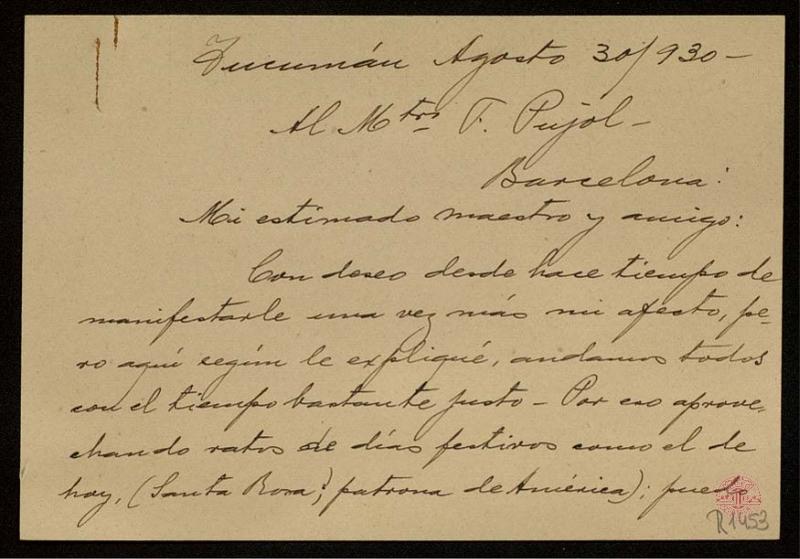 Tucumán Agosto 30/930 -
Al Mtro F. Pujol -
Barcelona:
Mi estimado maestro y amigo:
Con deseo desde hace tiempo de
manifestarle una vez más mi afesto, pe-
ro aquí según le expliqué, andamos todos
con el tiempo bastante justo - Por eso aprove-
chando ratos de días festivos como el de
hoy, (Santa Rosa, patrona de América); puedo
R1453